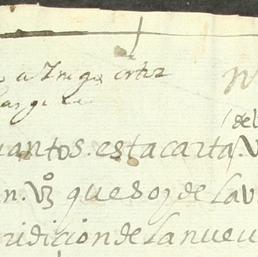 ortiz
del
uantos. esta carta. V
n. Vº que soy de la v
ridicion de la nueu